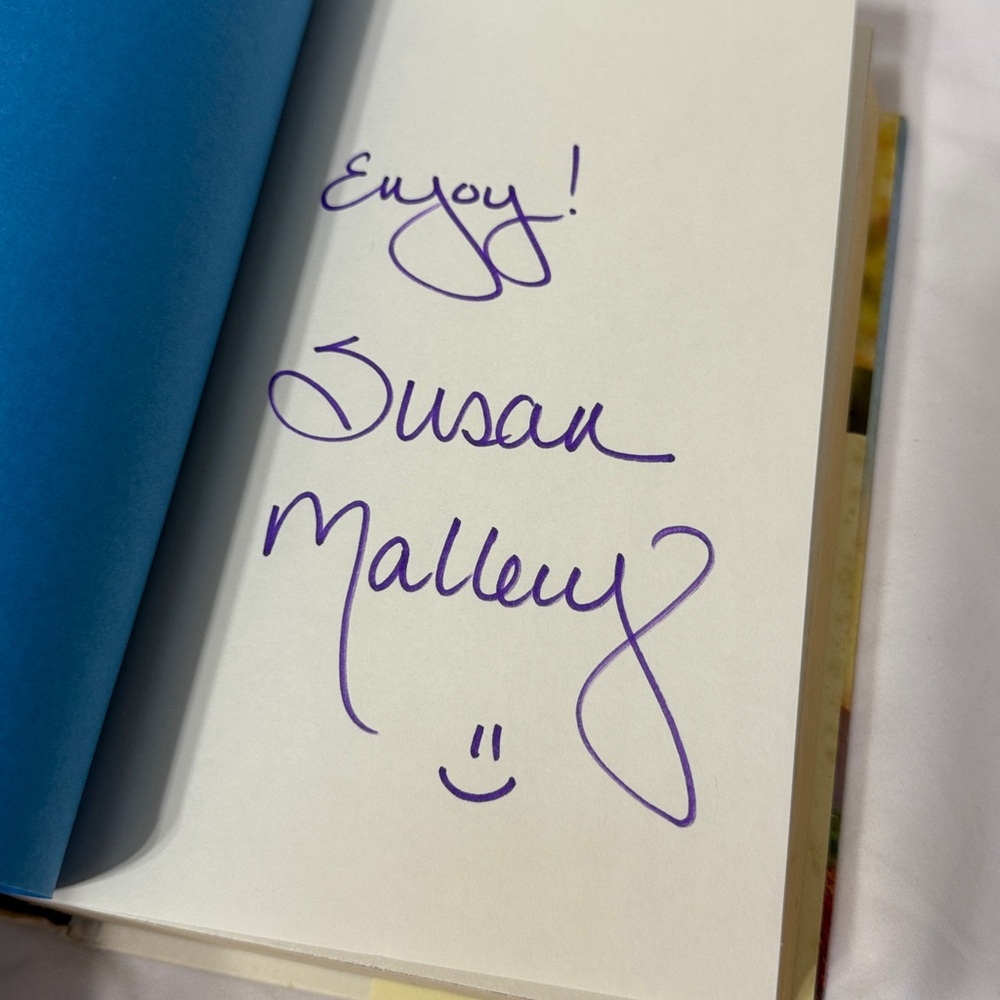 Enjoy!
Susan
Mallery